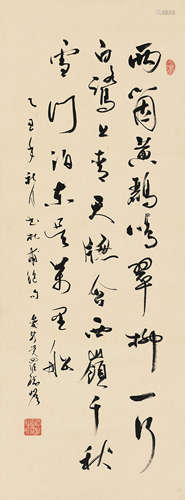 兩箇黃鸝鳴翠柳一行
白鷺上青天牕含西嶺千秋
雪門泊東吳萬里船
乙丑年秋月書杜甫絕句